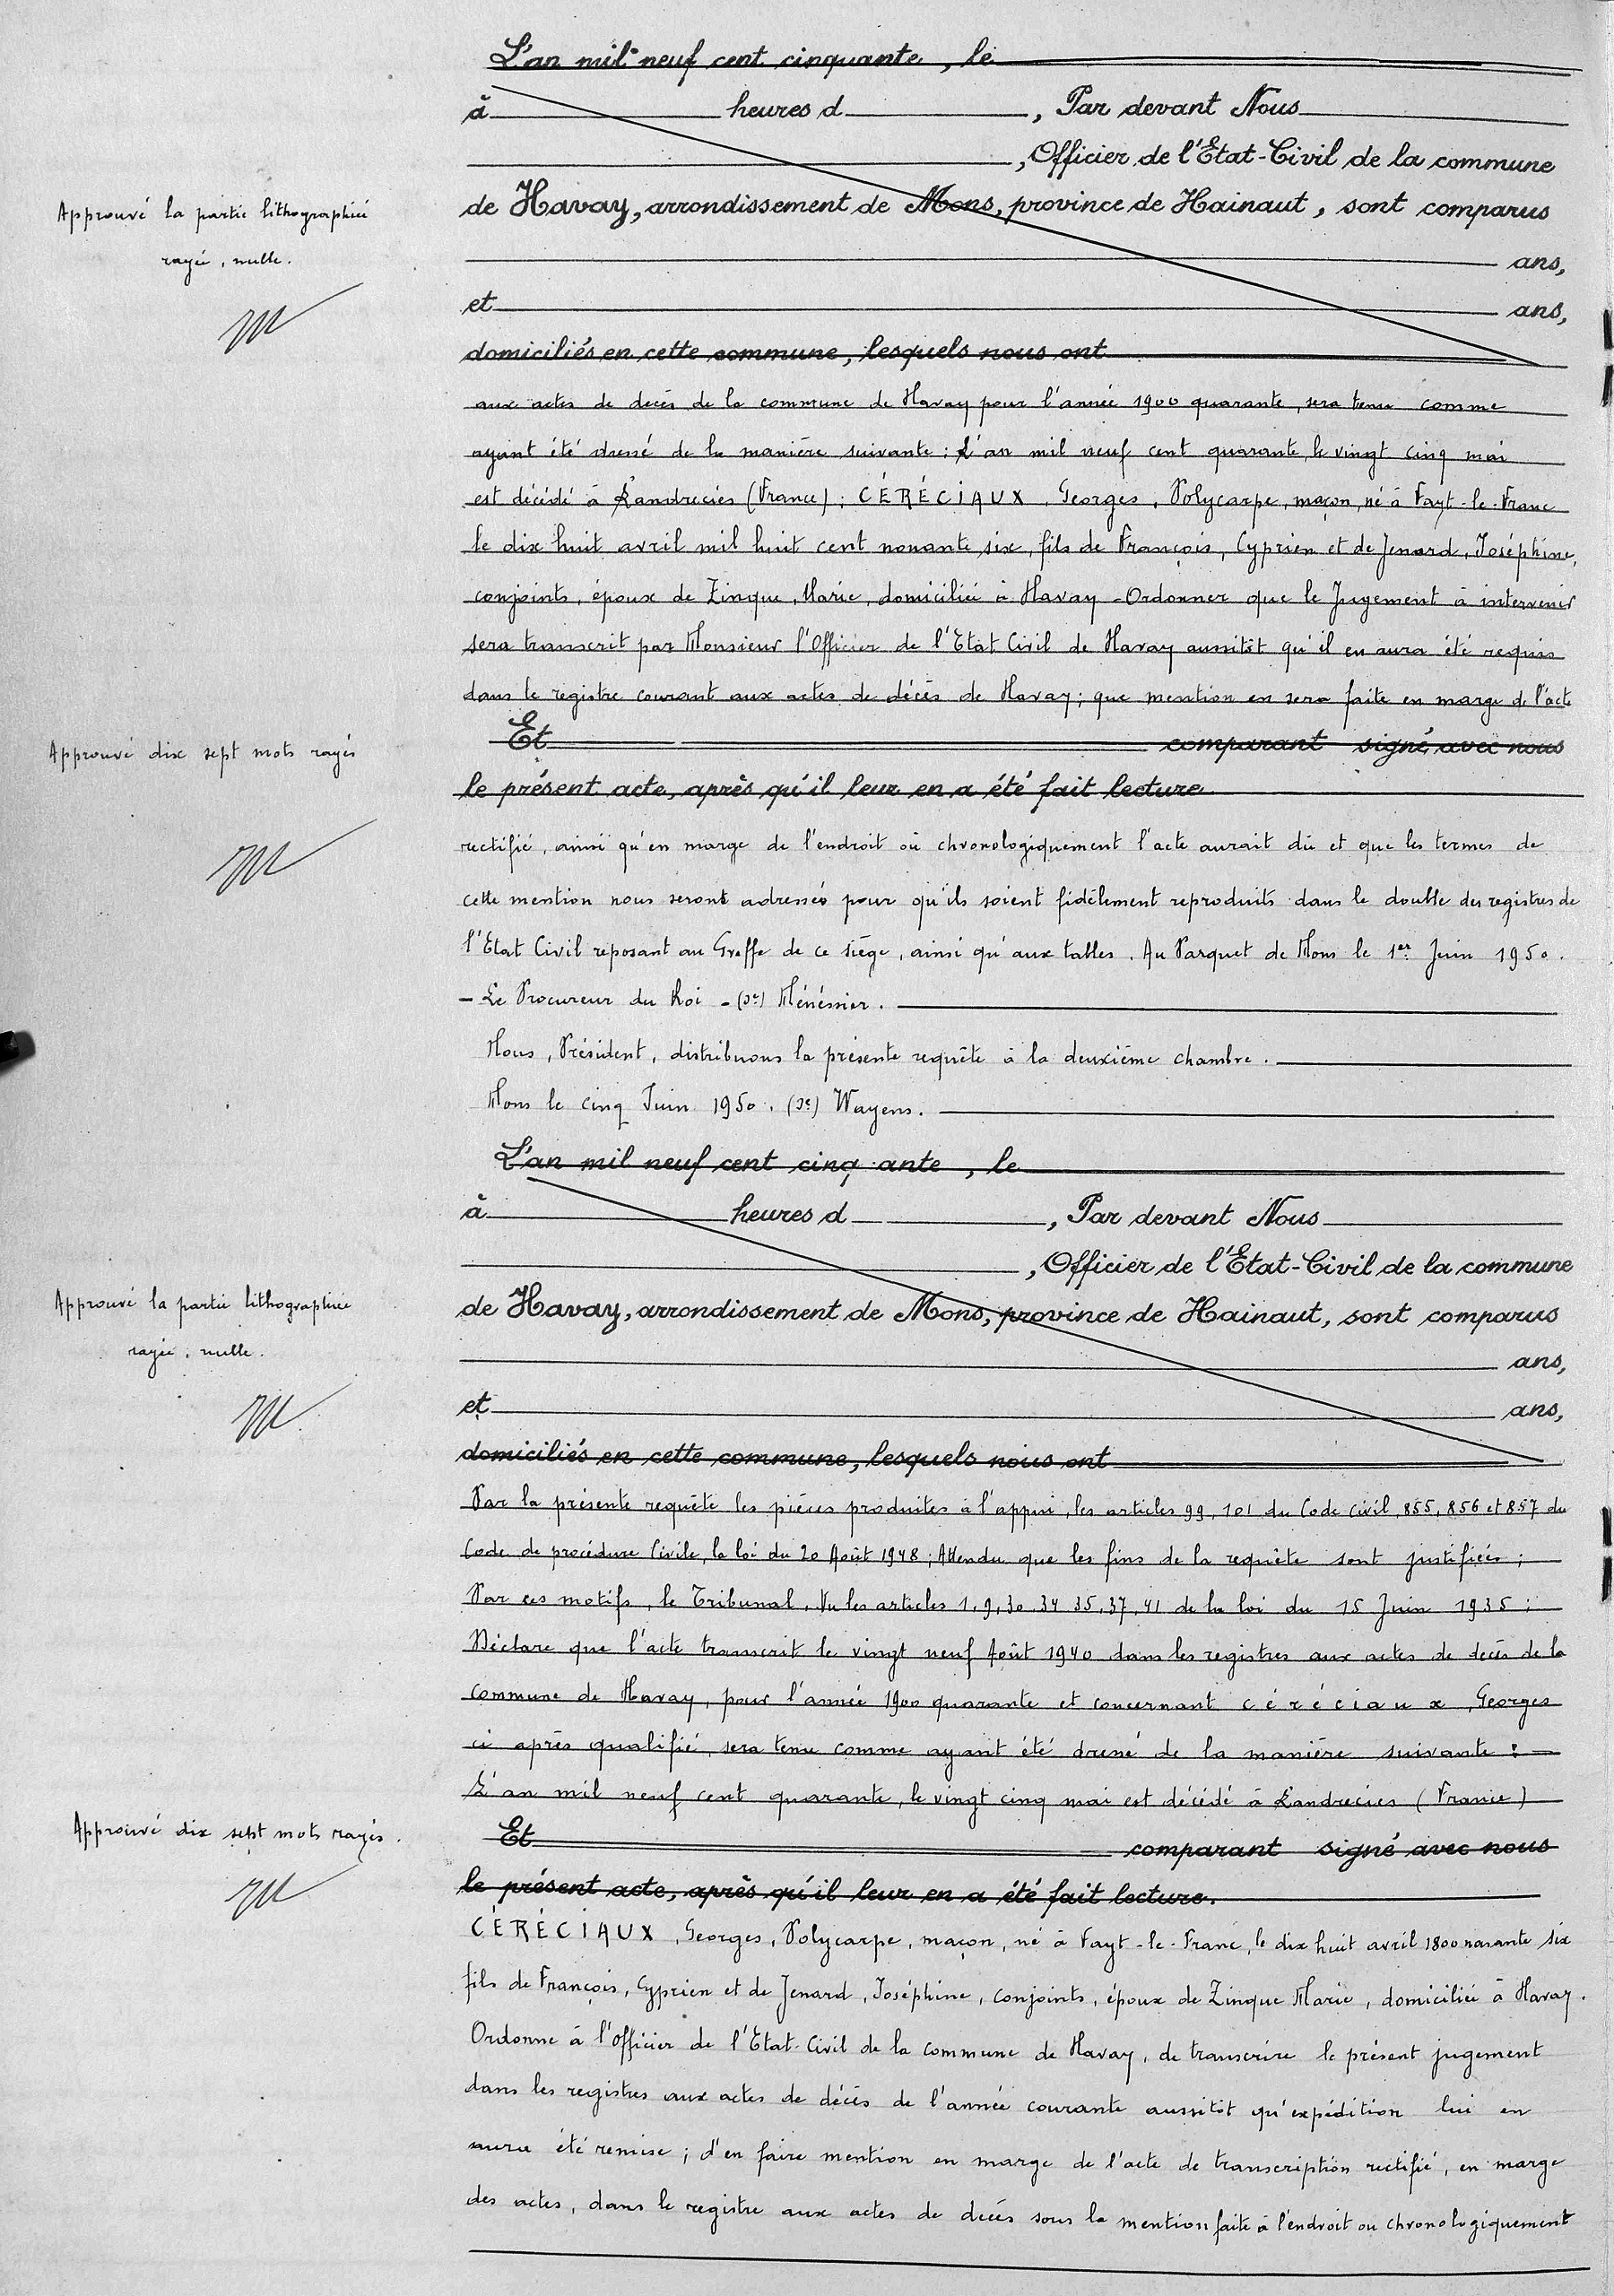 L'an mil neuf cent cinquante, le
à heures d , Par devant Nous
, Officier de l'Etat-Civil de la commune
de Havay, arrondissement de Mons, province de Hainaut, sont comparus
Approuvé la partie lithographiée
rayée, nulle.
ans,
et ans,
domiciliés en cette commune, lesquels nous ont
aux actes de décès de la commune de Havay pour l'année 1900 quarante, sera tenu comme
ayant été dressé de la manière suivante : L'an mil neuf cent quarante, le vingt cinq mai
est décédé à Landrecies (France) : CÉRÉCIAUX, Georges, Polycarpe, maçon, né à Fayt-le-Franc
le dix huit avril mil huit cent nonante six, fils de François, Cyprien et de Jenard, Joséphine,
conjoints, époux de Zinque, Marie, domicilié à Havay - Ordonner que le Jugement à intervenir
sera transcrit par Monsieur l'Officier de l'Etat Civil de Havay aussitôt qu'il en aura été requis
dans le registre courant aux actes de décès de Havay ; que mention en sera faite en marge de l'acte
Approuvé dix sept mots rayés
Et comparant signé avec nous
le présent acte, après qu'il leur en a été fait lecture
rectifié, ainsi qu'en marge de l'endroit où chronologiquement l'acte aurait dû et que les termes de
cette mention nous seront adressés pour qu'ils soient fidèlement reproduits dans le double des registres de
l'Etat Civil reposant au Greffe de ce siège, ainsi qu'aux tables. Au Parquet de Mons le 1er Juin 1950.
- Le Procureur du Roi - (sé) Ménéssier.
Nous, Président, distribuons la présente requête à la deuxième chambre.
Mons le cinq Juin 1950. (sé) Wayens.
L'an mil neuf cent cinq ante, le
à heures d , Par devant Nous
, Officier de l'Etat-Civil de la commune
Approuvé la partie lithographiée
rayée, nulle.
de Havay, arrondissement de Mons, province de Hainaut, sont comparus
ans,
et ans,
domiciliés en cette commune, lesquels nous ont
Par la présente requête les pièces produites à l'appui, les articles 99, 101 du Code Civil, 855, 856 et 857 du
Code de procédure Civile, la loi du 20 Août 1948 ; Attendu que les fins de la requête sont justifiées ;
Par ces motifs, le Tribunal, Vu les articles 1, 9, 30, 34 35, 37, 41 de la loi du 15 Juin 1935 ;
Déclare que l'acte transcrit le vingt neuf Août 1940 dans les registres aux actes de décès de la
commune de Havay, pour l'année 1900 quarante et concernant céréciaux, Georges
ci après qualifié, sera tenu comme ayant été dressé de la manière suivante :
L'an mil neuf cent quarante, le vingt cinq mai est décédé à Landrecies (France)
Approuvé dix sept mots rayés.
Et comparant signé avec nous
le présent acte, après qu'il leur en a été fait lecture.
CÉRÉCIAUX, Georges, Polycarpe, maçon, né à Fayt-le-Franc, le dix huit avril 1800 nonante six
fils de François, Cyprien et de Jenard, Joséphine, conjoints, époux de Zinque Marie, domicilié à Havay.
Ordonne à l'Officier de l'Etat-Civil de la commune de Havay, de transcrire le présent jugement
dans les registres aux actes de décès de l'année courante aussitôt qu'expédition lui en
aura été remise ; d'en faire mention en marge de l'acte de transcription rectifié, en marge
des actes, dans le registre aux actes de décès sous la mention faite à l'endroit ou chronologiquement